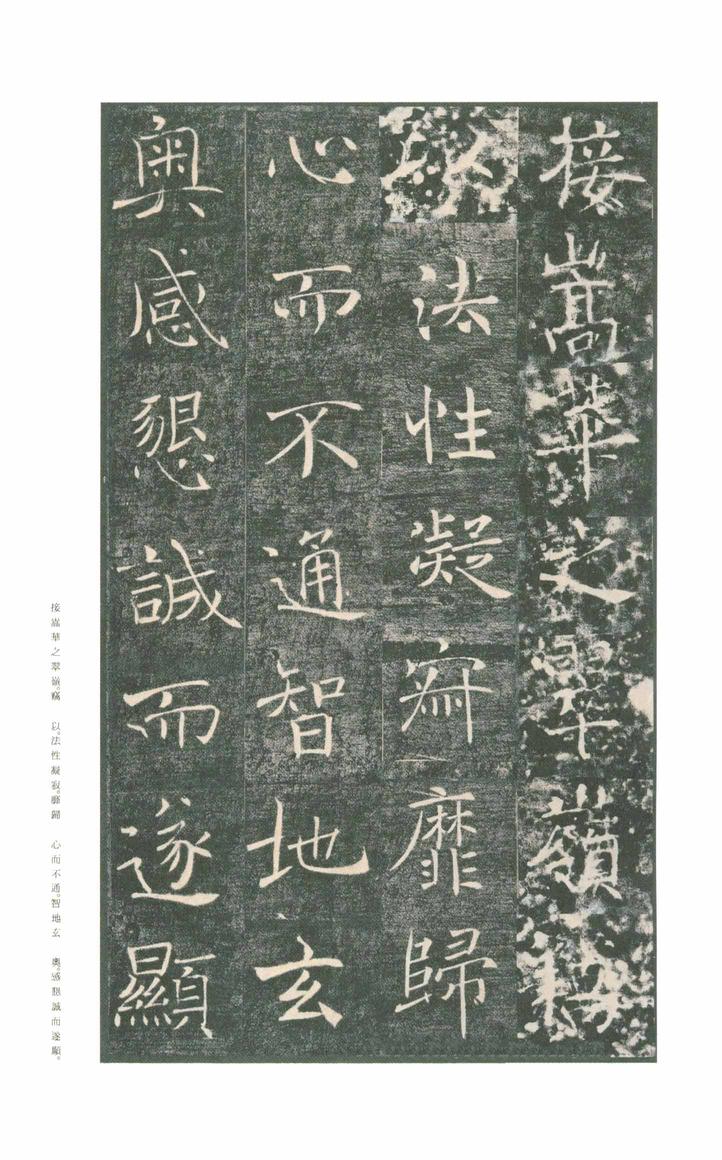 接嵩華之翠嶺竊
以法性凝寂靡歸
心而不通智地玄
奥感懇誠而遂顯
接嵩華之翠嶺。竊 以。法性凝寂。靡歸 心而不通。智地玄 奥。感懇誠而遂顯。